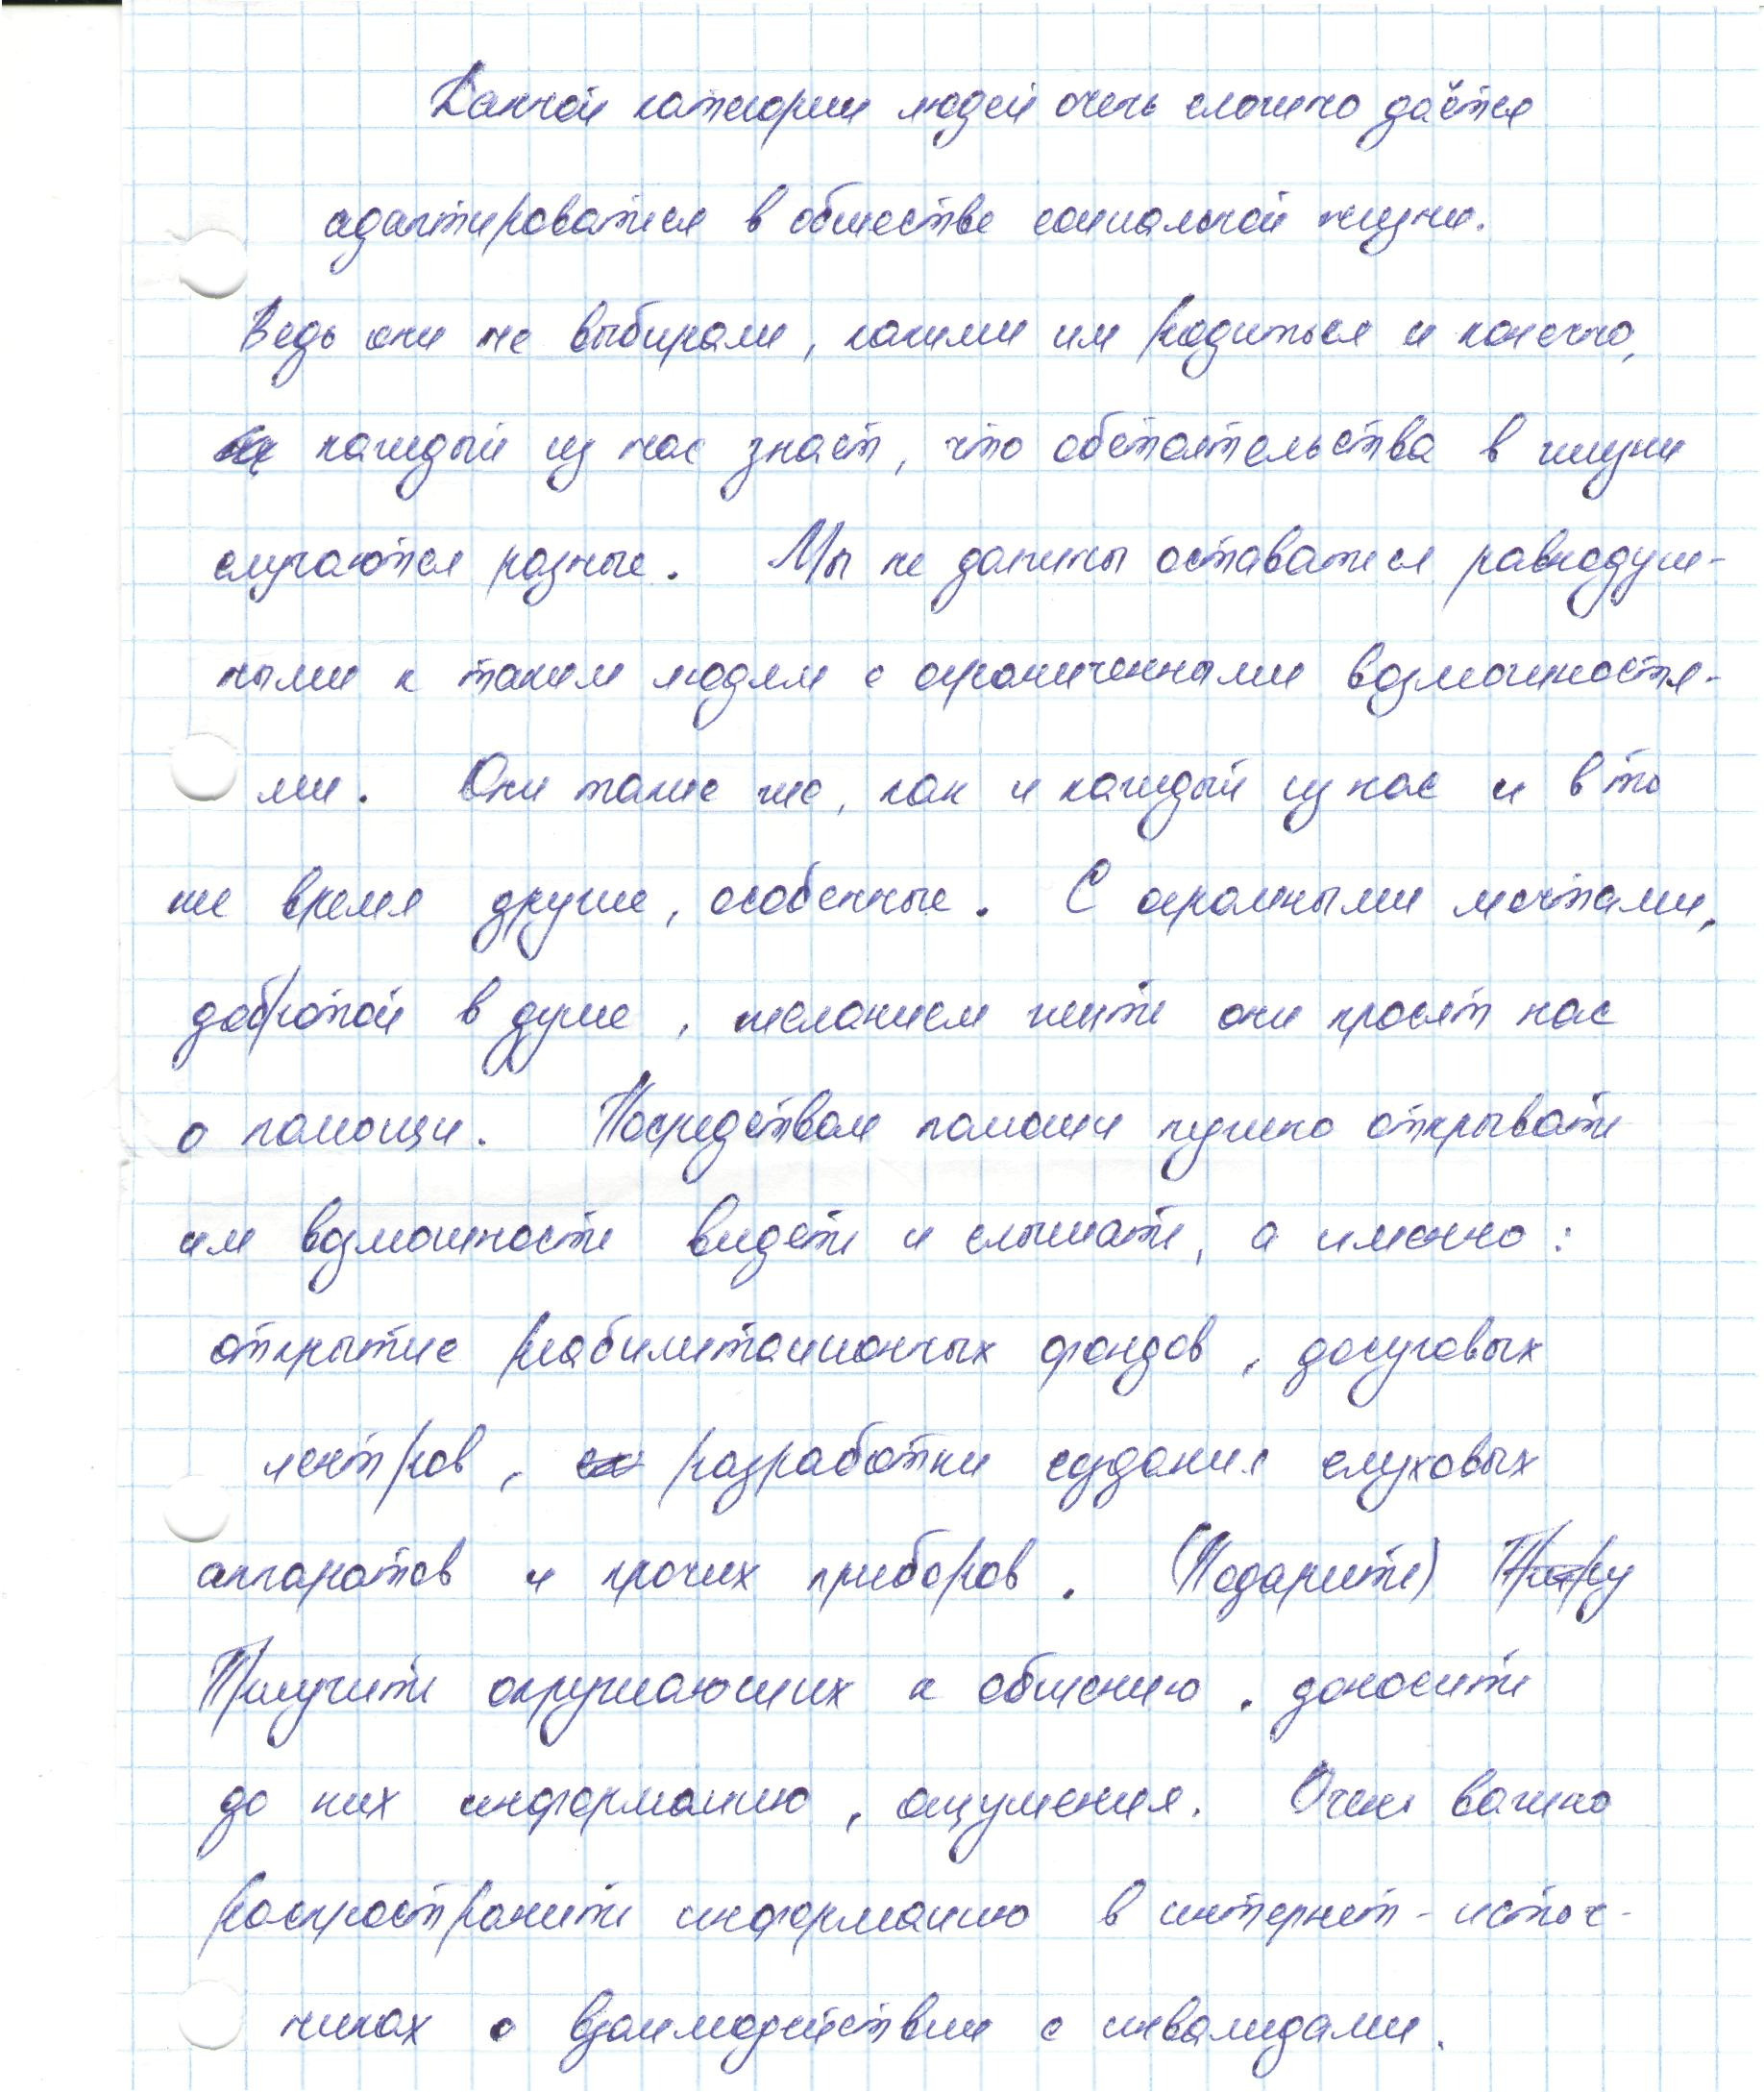 Данной категории людей очень сложно даётся
адаптироваться в обществе социальной жизни.
Ведь они не выбирали, какими им родиться и конечно,
каждый из нас знает, что обстоятельства в жизни
случаются разные. Мы не должны оставаться равнодуш-
ными к таким людям с ограниченными возможностя-
ми. Они такие же, как и каждый из нас и в то
же время другие, особенные. С огромными мечтами,
добротой в душе, желанием жить они просят нас
о помощи. Посредством помощи нужно открывать
им возможности видеть и слышать, а именно:
открытие реабилитационных фондов, досуговых
центров, разработки создания слуховых
аппаратов и прочих приборов. (Подарить)
Приучить окружающих к общению, доносить
до них информацию, ощущения. Очень важно
распространить информацию в интернет-источ-
никах о взаимодействии с инвалидами.